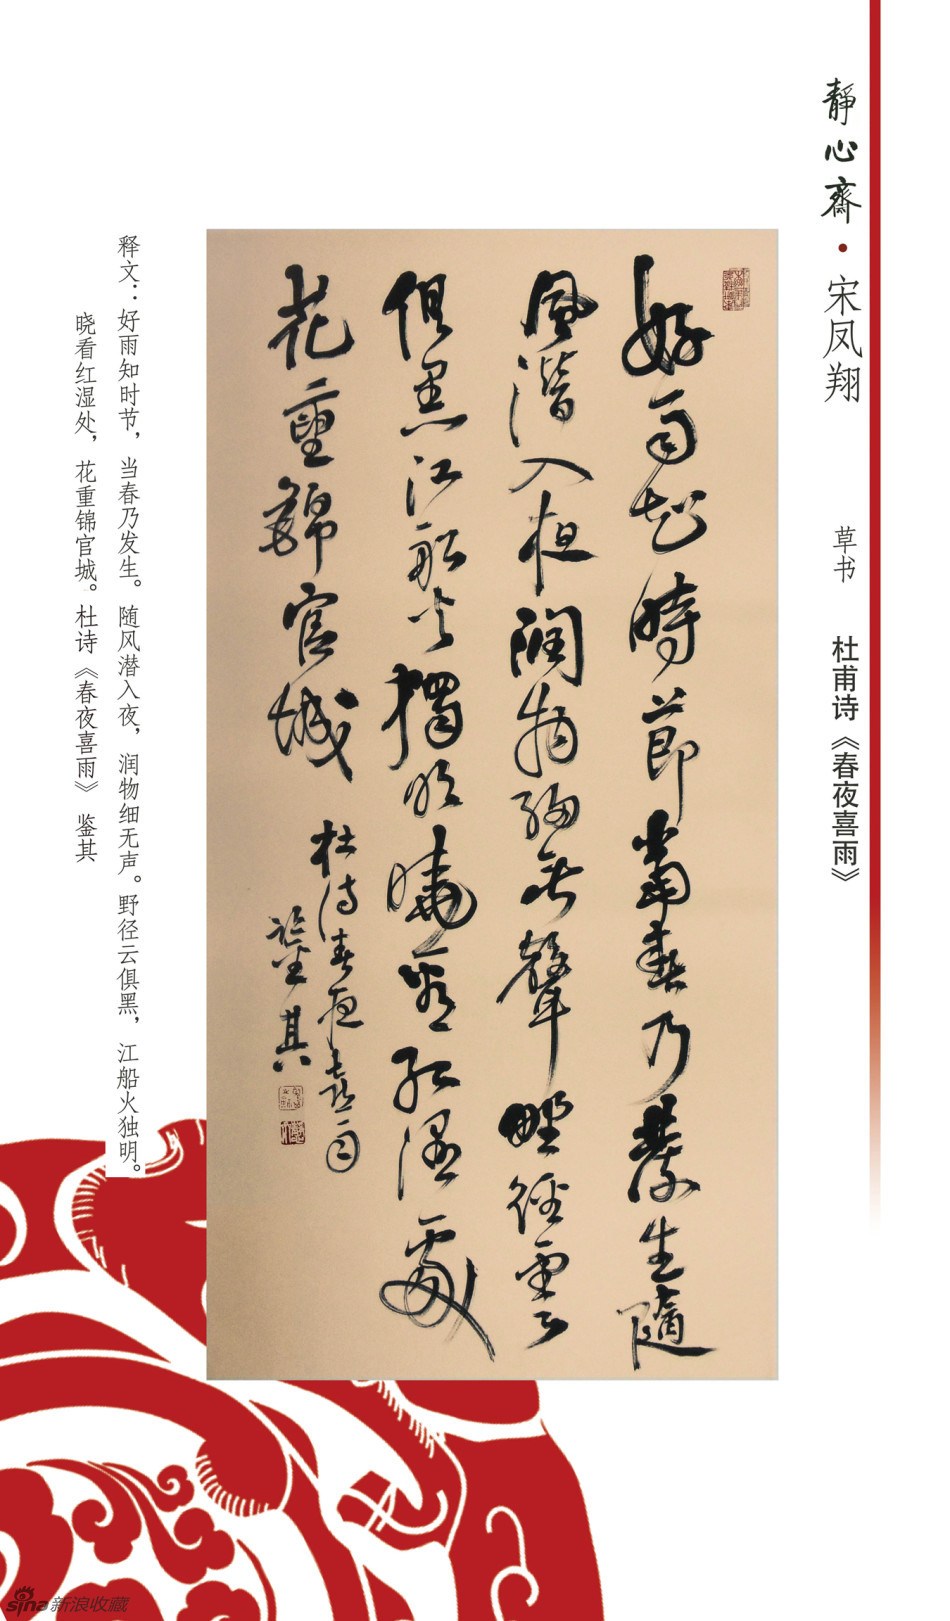 靜心齋·宋凤翔
草书 杜甫诗《春夜喜雨》
好雨知時節當春乃發生隨
風潛入夜潤物細無聲野徑雲
俱黑江船火獨明曉看紅濕處
花重錦官城
杜詩春夜喜雨
鉴其
释文：好雨知时节，当春乃发生。随风潜入夜，润物细无声。野径云俱黑，江船火独明。
晓看红湿处，花重锦官城。杜诗《春夜喜雨》 鉴其
sina新浪收藏